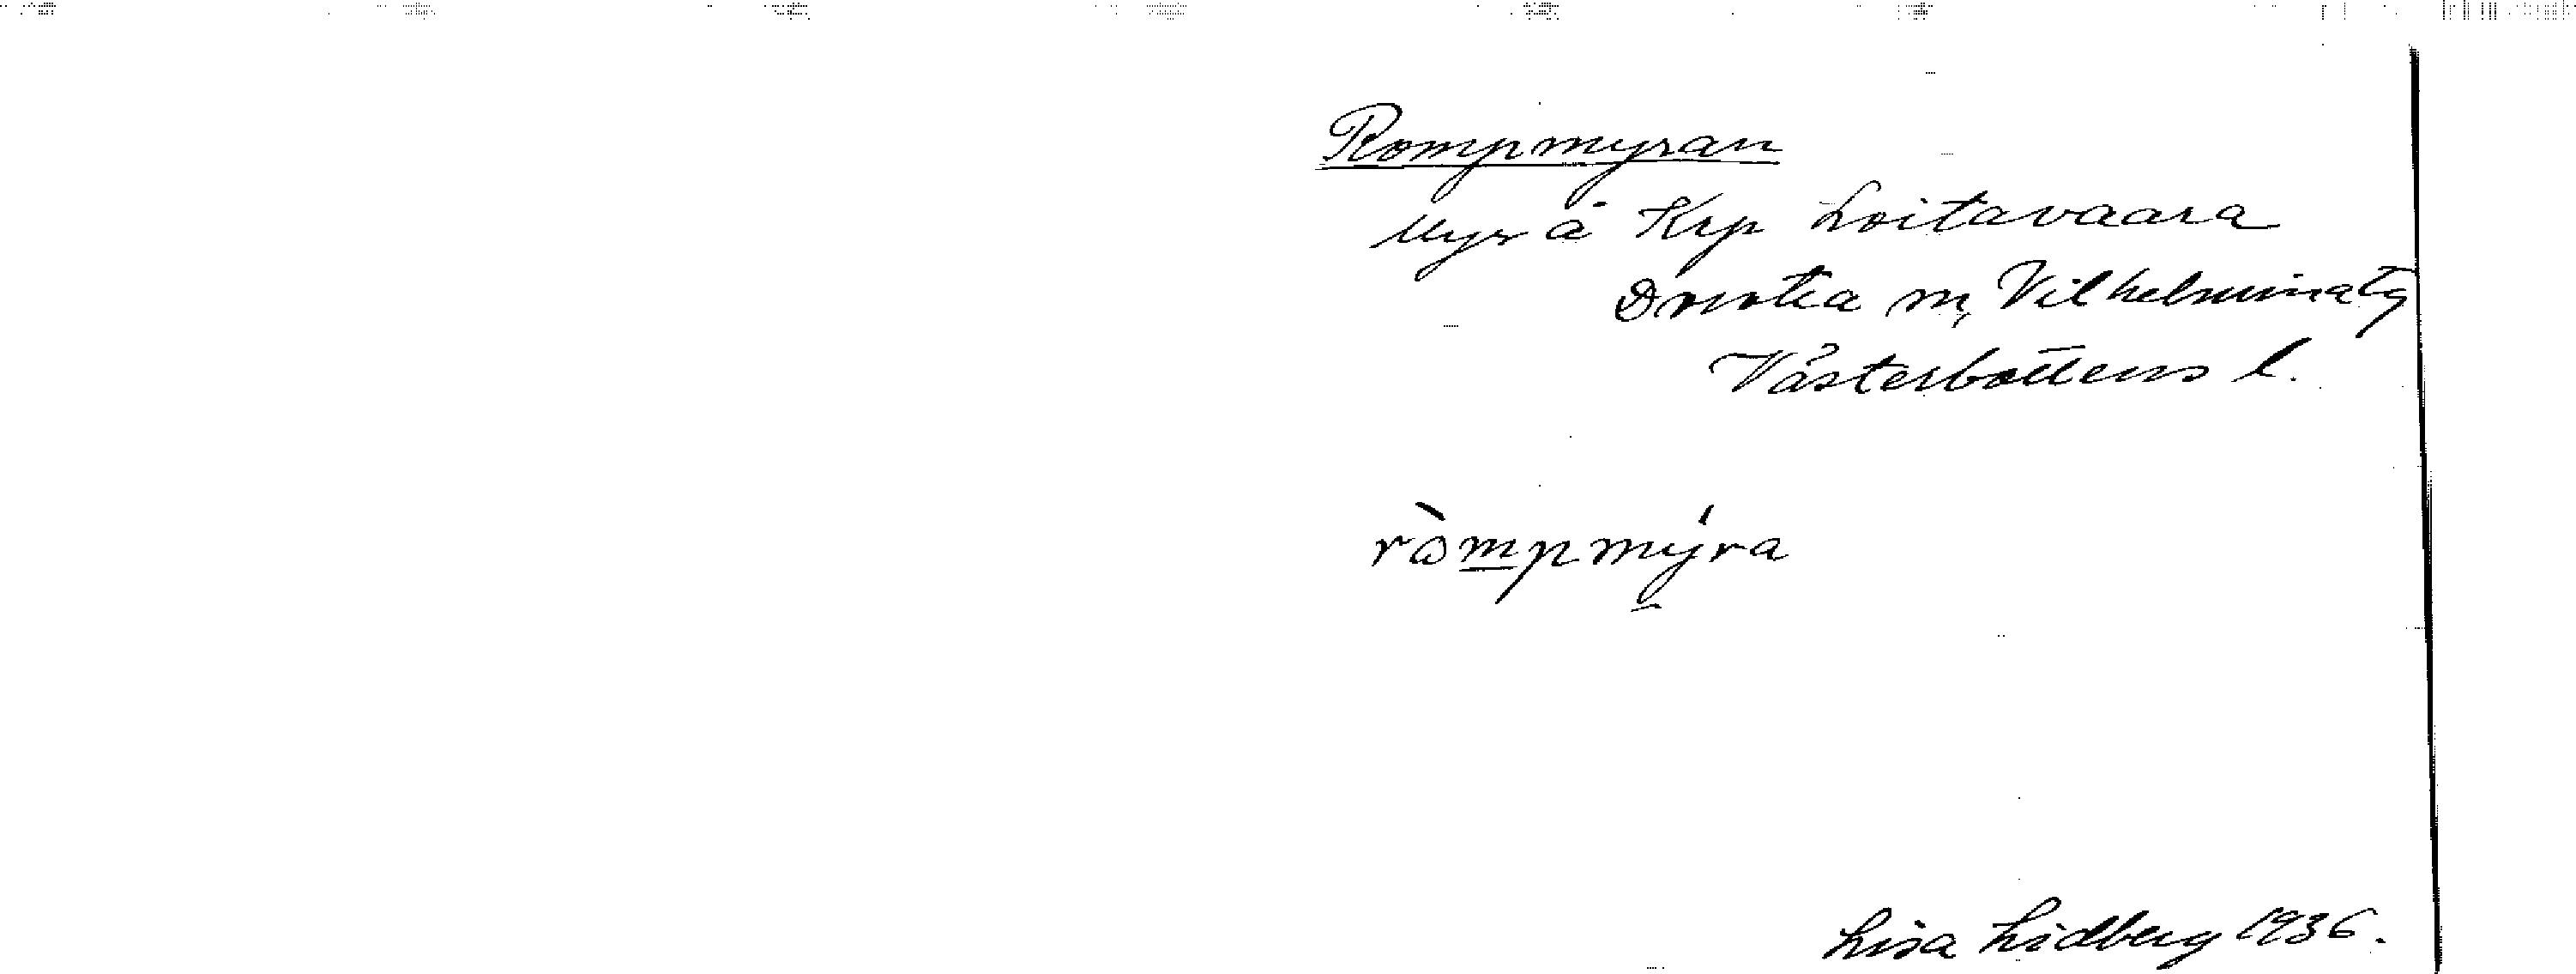 Rompmyran
Myr å Krp Loitavaara
Dorotea sn, Vilhelmina tg
Västerbottens l.
ròmpmýra
Lisa Lidberg 1936.